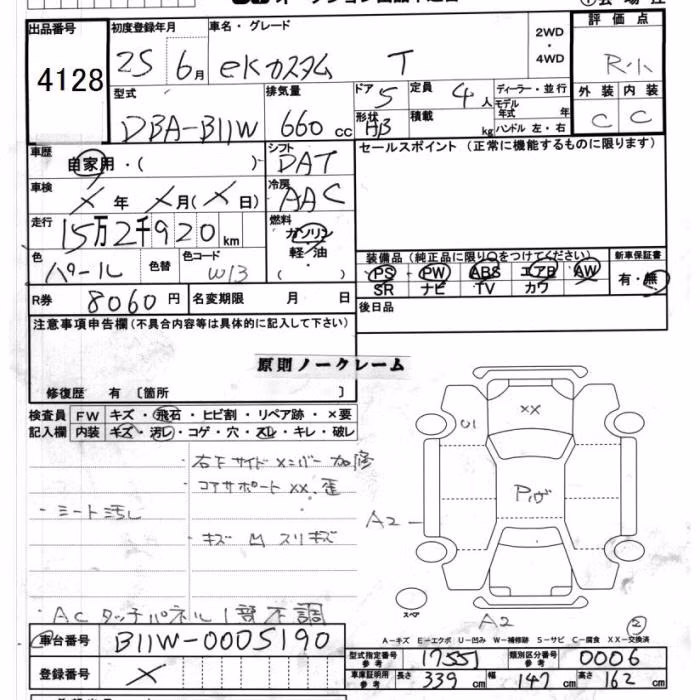 出品番号 4128
初度登録年月 25年 6月
車名・グレード eKカスタム T
2WD・4WD
評価点 R小
型式 DBA-B11W
排気量 660cc
ドア 5
形状 HB
定員 4人
積載 kg
ディーラー・並行
モデル年式 年
ハンドル 左・右
外装 C
内装 C
車歴 自家用・( )
シフト DAT
セールスポイント (正常に機能するものに限ります)
車検 X年 X月(X日)
冷房 AAC
走行 15万2千920km
燃料 ガソリン 軽・油 ( )
色 パール
色替
色コード W13
装備品 (純正品に限り○をつけてください)
新車保証書
PS PW ABS エアB AW
有・無
SR ナビ TV カワ
R券 8060円
名変期限 月 日
後日品
注意事項申告欄 (不具合内容等は具体的に記入して下さい)
原則ノークレーム
修復歴 有 〔箇所 〕
検査員記入欄
FW キズ・飛石・ヒビ割・リペア跡・×要
内装 キズ・汚レ・コゲ・穴・スレ・キレ・破レ
・右F サイドメンバー 加修
コアサポート XX、歪
・シート汚レ
・キズ 凹 スリキズ
・AC タッチパネル1部不調
U1
XX
Pルーフ
A2
スペア
A2
②
A-キズ E-エクボ U-凹み W-補修跡 S-サビ C-腐食 XX-交換済
車台番号 B11W-0005190
登録番号 X
型式指定番号 参考 17551
類別区分番号 参考 0006
車庫証明用 参考 長さ 339cm 幅 147cm 高さ 162cm